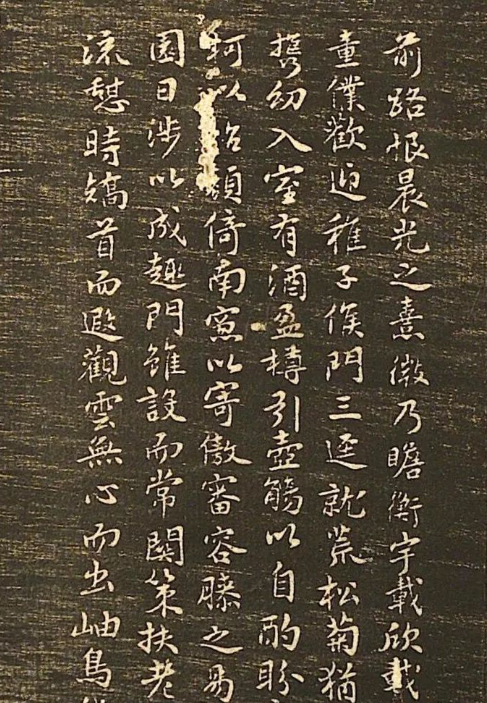 前路恨晨光之熹微乃瞻衡宇載欣載
童僕歡迎稚子候門三逕就荒松菊猶
攜幼入室有酒盈樽引壺觴以自酌盼
柯以怡顏倚南窓以寄傲審容膝之易
園日涉以成趣門雖設而常關策扶老
流憩時矯首而遐觀雲無心而出岫鳥